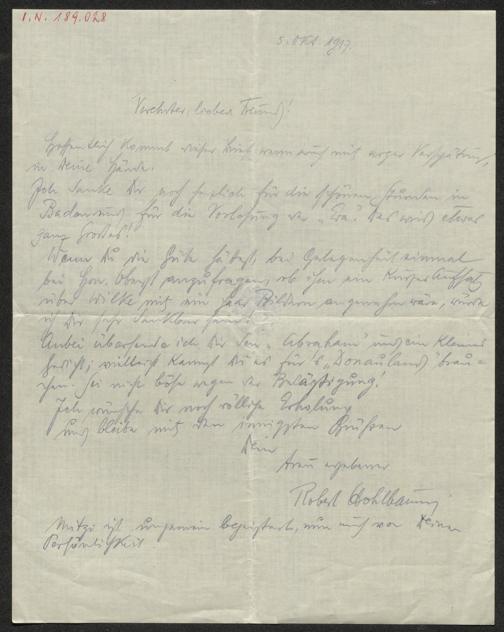 I.N. 189.028
5. Okt. 1917.
Verehrter, lieber Freund!
Hoffentlich kommt dieser Brief wenn auch mit arger Verspätung,
in Deine Hände.
Ich danke Dir noch herzlich für die schönen Stunden in
Baden und für die Vorlesung der Das wird etwas
ganz Großes!
Wenn Du die Güte hättest, bei Gelegenheit einmal
bei Hrn. Oberst anzufragen, ob ihm ein kurzer Aufsatz
über Wilke mit ein paar Bildern angenehm wäre, würde
ich Dir sehr dankbar sein!
Anbei übersende ich Dir den „Abraham" und ein kleines
Gedicht; vielleicht kannst Du es für's „Donauland" brau-
chen. Sei nicht böse wegen der Belästigung!
Ich wünsche Dir noch völlige Erholung
und bleibe mit den innigsten Grüßen
Dein
treu ergebener
Robert Hohlbaum
Mitzi ist ungemein begeistert, nun auch von Deiner
Persönlichkeit